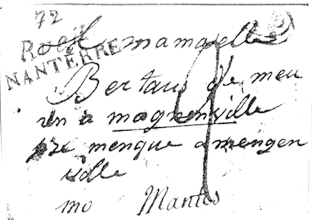 72
NANTERRE
mamaselle
Bertaus de meu
rên a magnenville
pre menque amengen
ville
mo Mantes